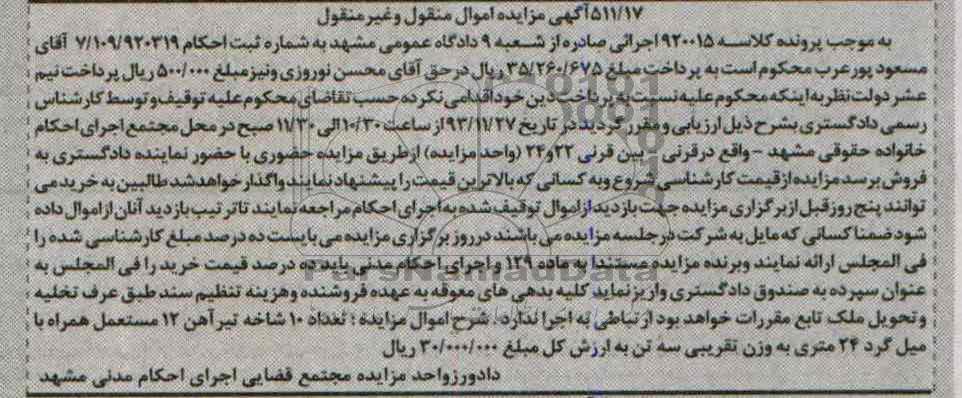 ۵۱۱/۱۷آگهی مزایده اموال منقول وغیرمنقول
به موجب پرونده کلاسه ۹۲۰۰۱۵ اجرائی صادره از شعبه ۹ دادگاه عمومی مشهد به شماره ثبت احکام ۷/۱۰۹/۹۲۰۳۱۹ آقای
مسعود پورعرب محکوم است به پرداخت مبلغ ۳۵/۲۶۰/۶۷۵ ریال درحق آقای محسن نوروزی ونیزمبلغ ۵۰۰/۰۰۰ ریال پرداخت نیم
عشر دولت نظربه اینکه محکوم علیه نسبت به پرداخت دین خوداقدامی نکرده حسب تقاضای محکوم علیه توقیف وتوسط کارشناس
رسمی دادگستری بشرح ذیل ارزیابی ومقررگردید در تاریخ ۹۳/۱۱/۲۷ از ساعت ۱۰/۳۰الی ۱۱/۳۰ صبح در محل مجتمع اجرای احکام
خانواده حقوقی مشهد - واقع درقرنی - بین قرنی ۲۲و۲۴ (واحد مزایده) ازطریق مزایده حضوری با حضور نماینده دادگستری به
فروش برسد مزایده ازقیمت کارشناسی شروع وبه کسانی که بالاترین قیمت را پیشنهاد نمایند واگذار خواهدشد طالبین به خرید می
توانند پنج روز قبل ازبرگزاری مزایده جهت بازدید ازاموال توقیف شده به اجرای احکام مراجعه نمایند تا ترتیب بازدید آنان ازاموال داده
شود ضمنا کسانی که مایل به شرکت در جلسه مزایده می باشند درروز برگزاری مزایده می بایست ده درصد مبلغ کارشناسی شده را
فی المجلس ارائه نمایند وبرنده مزایده مستندا به ماده ۱۲۹ و اجرای احکام مدنی باید ده درصد قیمت خرید را فی المجلس به
عنوان سپرده به صندوق دادگستری واریزنماید کلیه بدهی های معوقه به عهده فروشنده وهزینه تنظیم سند طبق عرف تخلیه
وتحویل ملک تابع مقررات خواهد بود ارتباطی به اجرا ندارد. شرح اموال مزایده : تعداد ۱۰ شاخه تیرآهن ۱۲ مستعمل همراه با
میل گرد ۲۴ متری به وزن تقریبی سه تن به ارزش کل مبلغ ۳۰/۰۰۰/۰۰۰ ریال
دادورزواحد مزایده مجتمع قضایی اجرای احکام مدنی مشهد
ParsNamadData